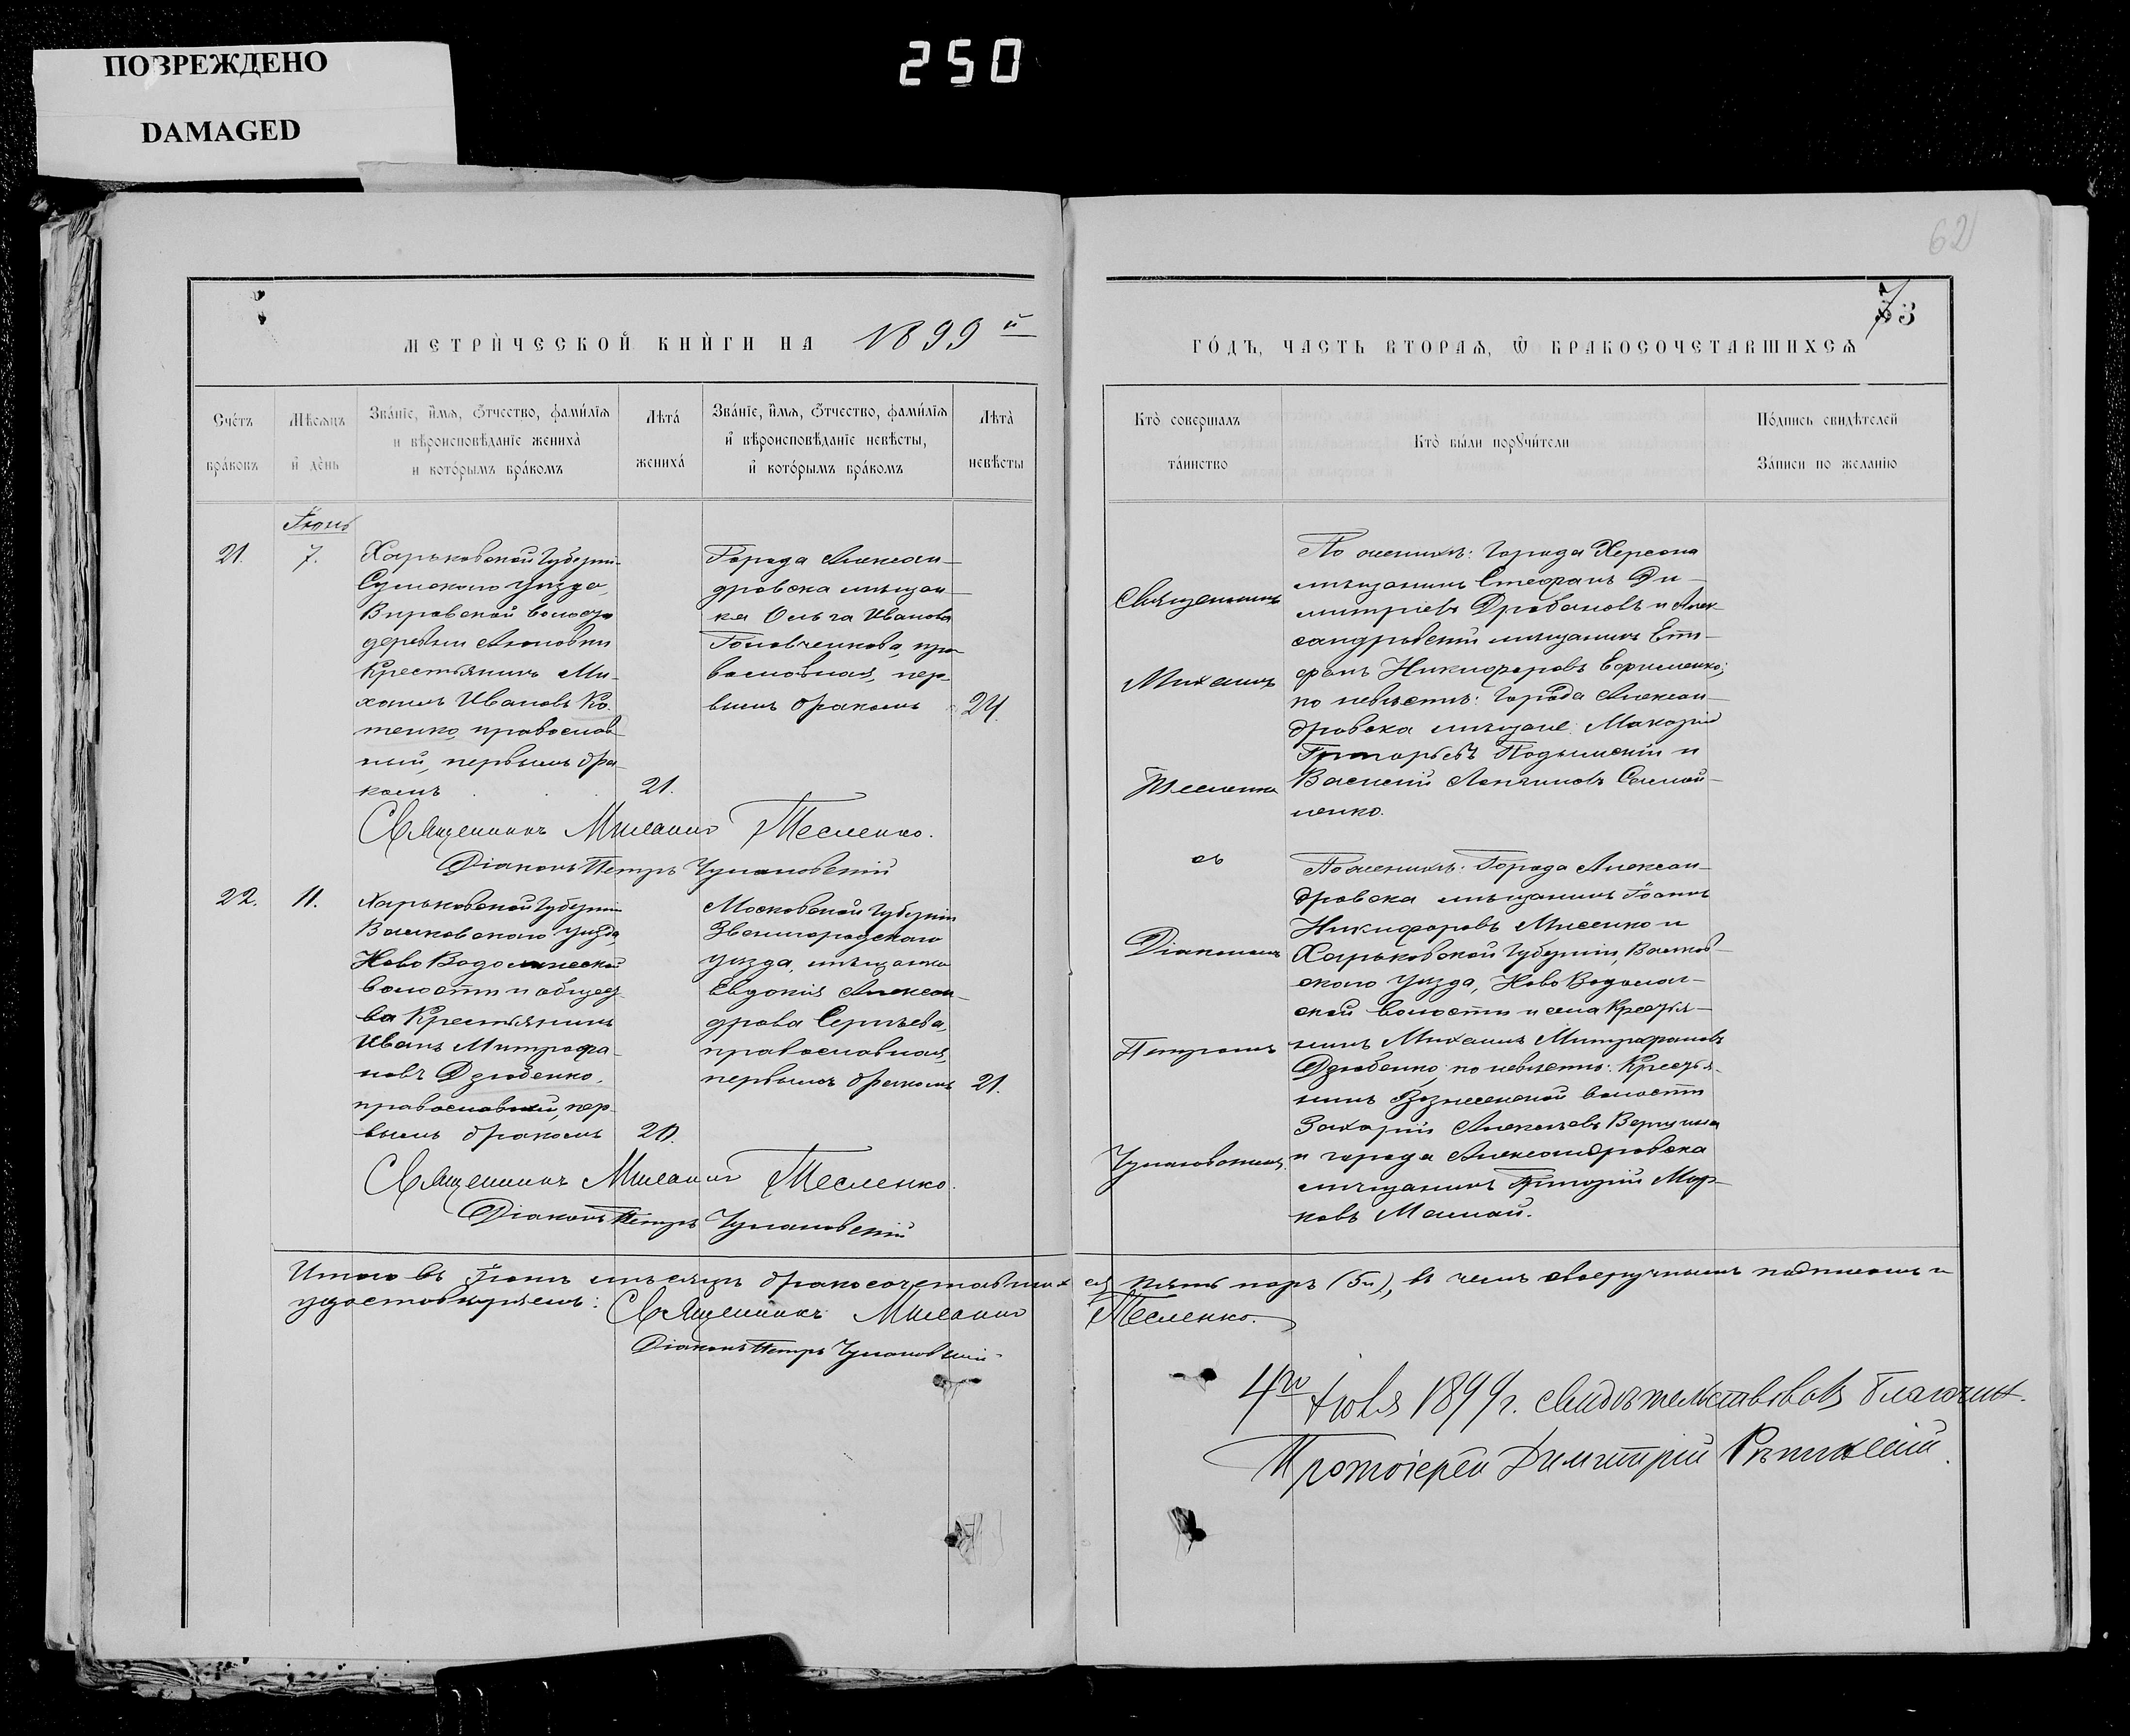 ПОВРЕЖДЕНО
DAMAGED
250
62
73
МЕТРИЧЕСКОЙ КНИГИ НА 1899й
ГОДЪ, ЧАСТЬ ВТОРАЯ, Ѡ БРАКОСОЧЕТАВШИХСЯ
Счетъ браковъ
Мѣсяцъ и день
Званіе, имя, отчество, фамилія
и вѣроисповѣданіе жениха
и которымъ бракомъ
Лѣта жениха
Званіе, имя, отчество, фамилія
и вѣроисповѣданіе невѣсты,
и которымъ бракомъ
Лѣта невѣсты
Кто совершалъ
таинство
Кто были поручители
Подпись свидѣтелей
Записи по желанію
Іюнь
21.
7.
Харьковской Губерніи
Сумского уѣзда,
Вировской волости
деревни
Крестьянинъ Ми-
хаилъ Ивановъ Ко-
тенко, православ-
ный, первымъ бра-
комъ
21.
Города Алексан-
дровска мѣщан-
ка Ольга Иванова
Головченкова, пра-
вославная, пер-
вымъ бракомъ
24.
Священникъ
Михаилъ
Тесленко
съ
Діакономъ
Петромъ
По женихѣ: Города Херсона
мѣщанинъ Стефанъ Ди-
митріевъ Дробановъ и Алек-
сандровскій мѣщанинъ
Никифоровъ Ефименко;
по невѣстѣ: города Алексан-
дровска мѣщане: Макарій
Григорьевъ и
Василій
ленко.
Священникъ Тесленко.
Діаконъ Петръ
22.
11.
Харьковской Губерніи
Валковского уѣзда,
Ново Водолажской
волости и общест-
ва Крестьянинъ
Иванъ Митрофа-
новъ Дзюбенко,
православный, пер-
вымъ бракомъ
20.
Московской Губерніи
Звенигородского
уѣзда, мѣщанка
Евдокія Алексан-
дрова Сергѣева,
православная,
первымъ бракомъ
21.
По женихѣ: Города Алексан-
дровска мѣщанинъ Іоаннъ
Никифоровъ Мисенко и
Харьковской Губерніи, Валков-
ского уѣзда, Ново Водолаж-
ской волости и села Крестья-
нинъ Михаилъ Митрофановъ
Дзюбенко; по невѣстѣ: Крестья-
нинъ Вознесенской волости
Захарій Алексѣевъ
и города Александровска
мѣщанинъ Григорій Мар-
ковъ
Священникъ Тесленко.
Діаконъ Петръ
Итого въ Іюнѣ мѣсяцѣ бракосочетавшихся пять паръ (5п), въ чемъ своеручнымъ подписомъ и
удостовѣряемъ: Священникъ Тесленко.
Діаконъ Петръ
4го Іюля 1899г. свидѣтельствовалъ благочин.
Протоіерей Димитрій